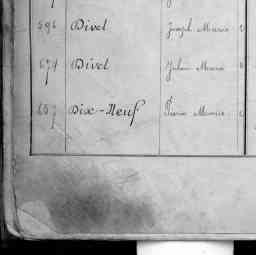 596 Divel Joseph Marie
679 Divel Julien Marie
657 Dix-Neuf Pierre Marie